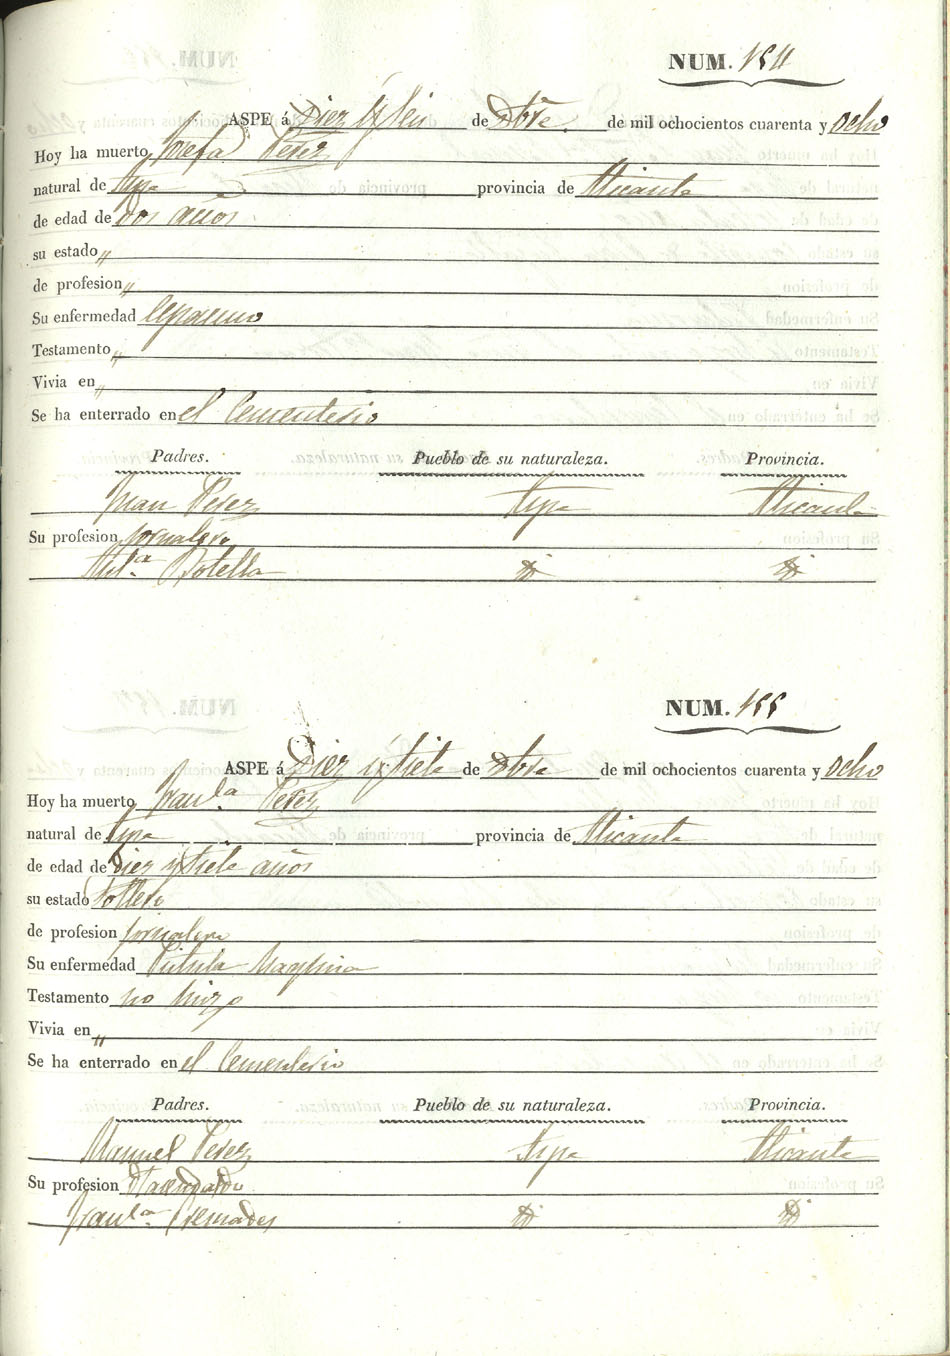 NUM. 154
ASPE á Diez y seis de Dbre. de mil ochocientos cuarenta y ocho
Hoy ha muerto Josefa Perez
natural de Aspe provincia de Alicante
de edad de dos años
su estado „
de profesion „
Su enfermedad Espasmo
Testamento „
Vivia en „
Se ha enterrado en el Cementerio
Padres. Pueblo de su naturaleza. Provincia.
Juan Perez Aspe Alicante
Su profesion jornalero
Botella
NUM. 155
ASPE á Diez y siete de Dbre de mil ochocientos cuarenta y ocho
Hoy ha muerto Perez
natural de Aspe provincia de Alicante
de edad de diez y siete años
su estado Soltero
de profesion jornalero
Su enfermedad
Testamento no hizo
Vivia en „
Se ha enterrado en el Cementerio
Padres. Pueblo de su naturaleza. Provincia.
Manuel Perez Aspe Alicante
Su profesion Hacendado
Cremades